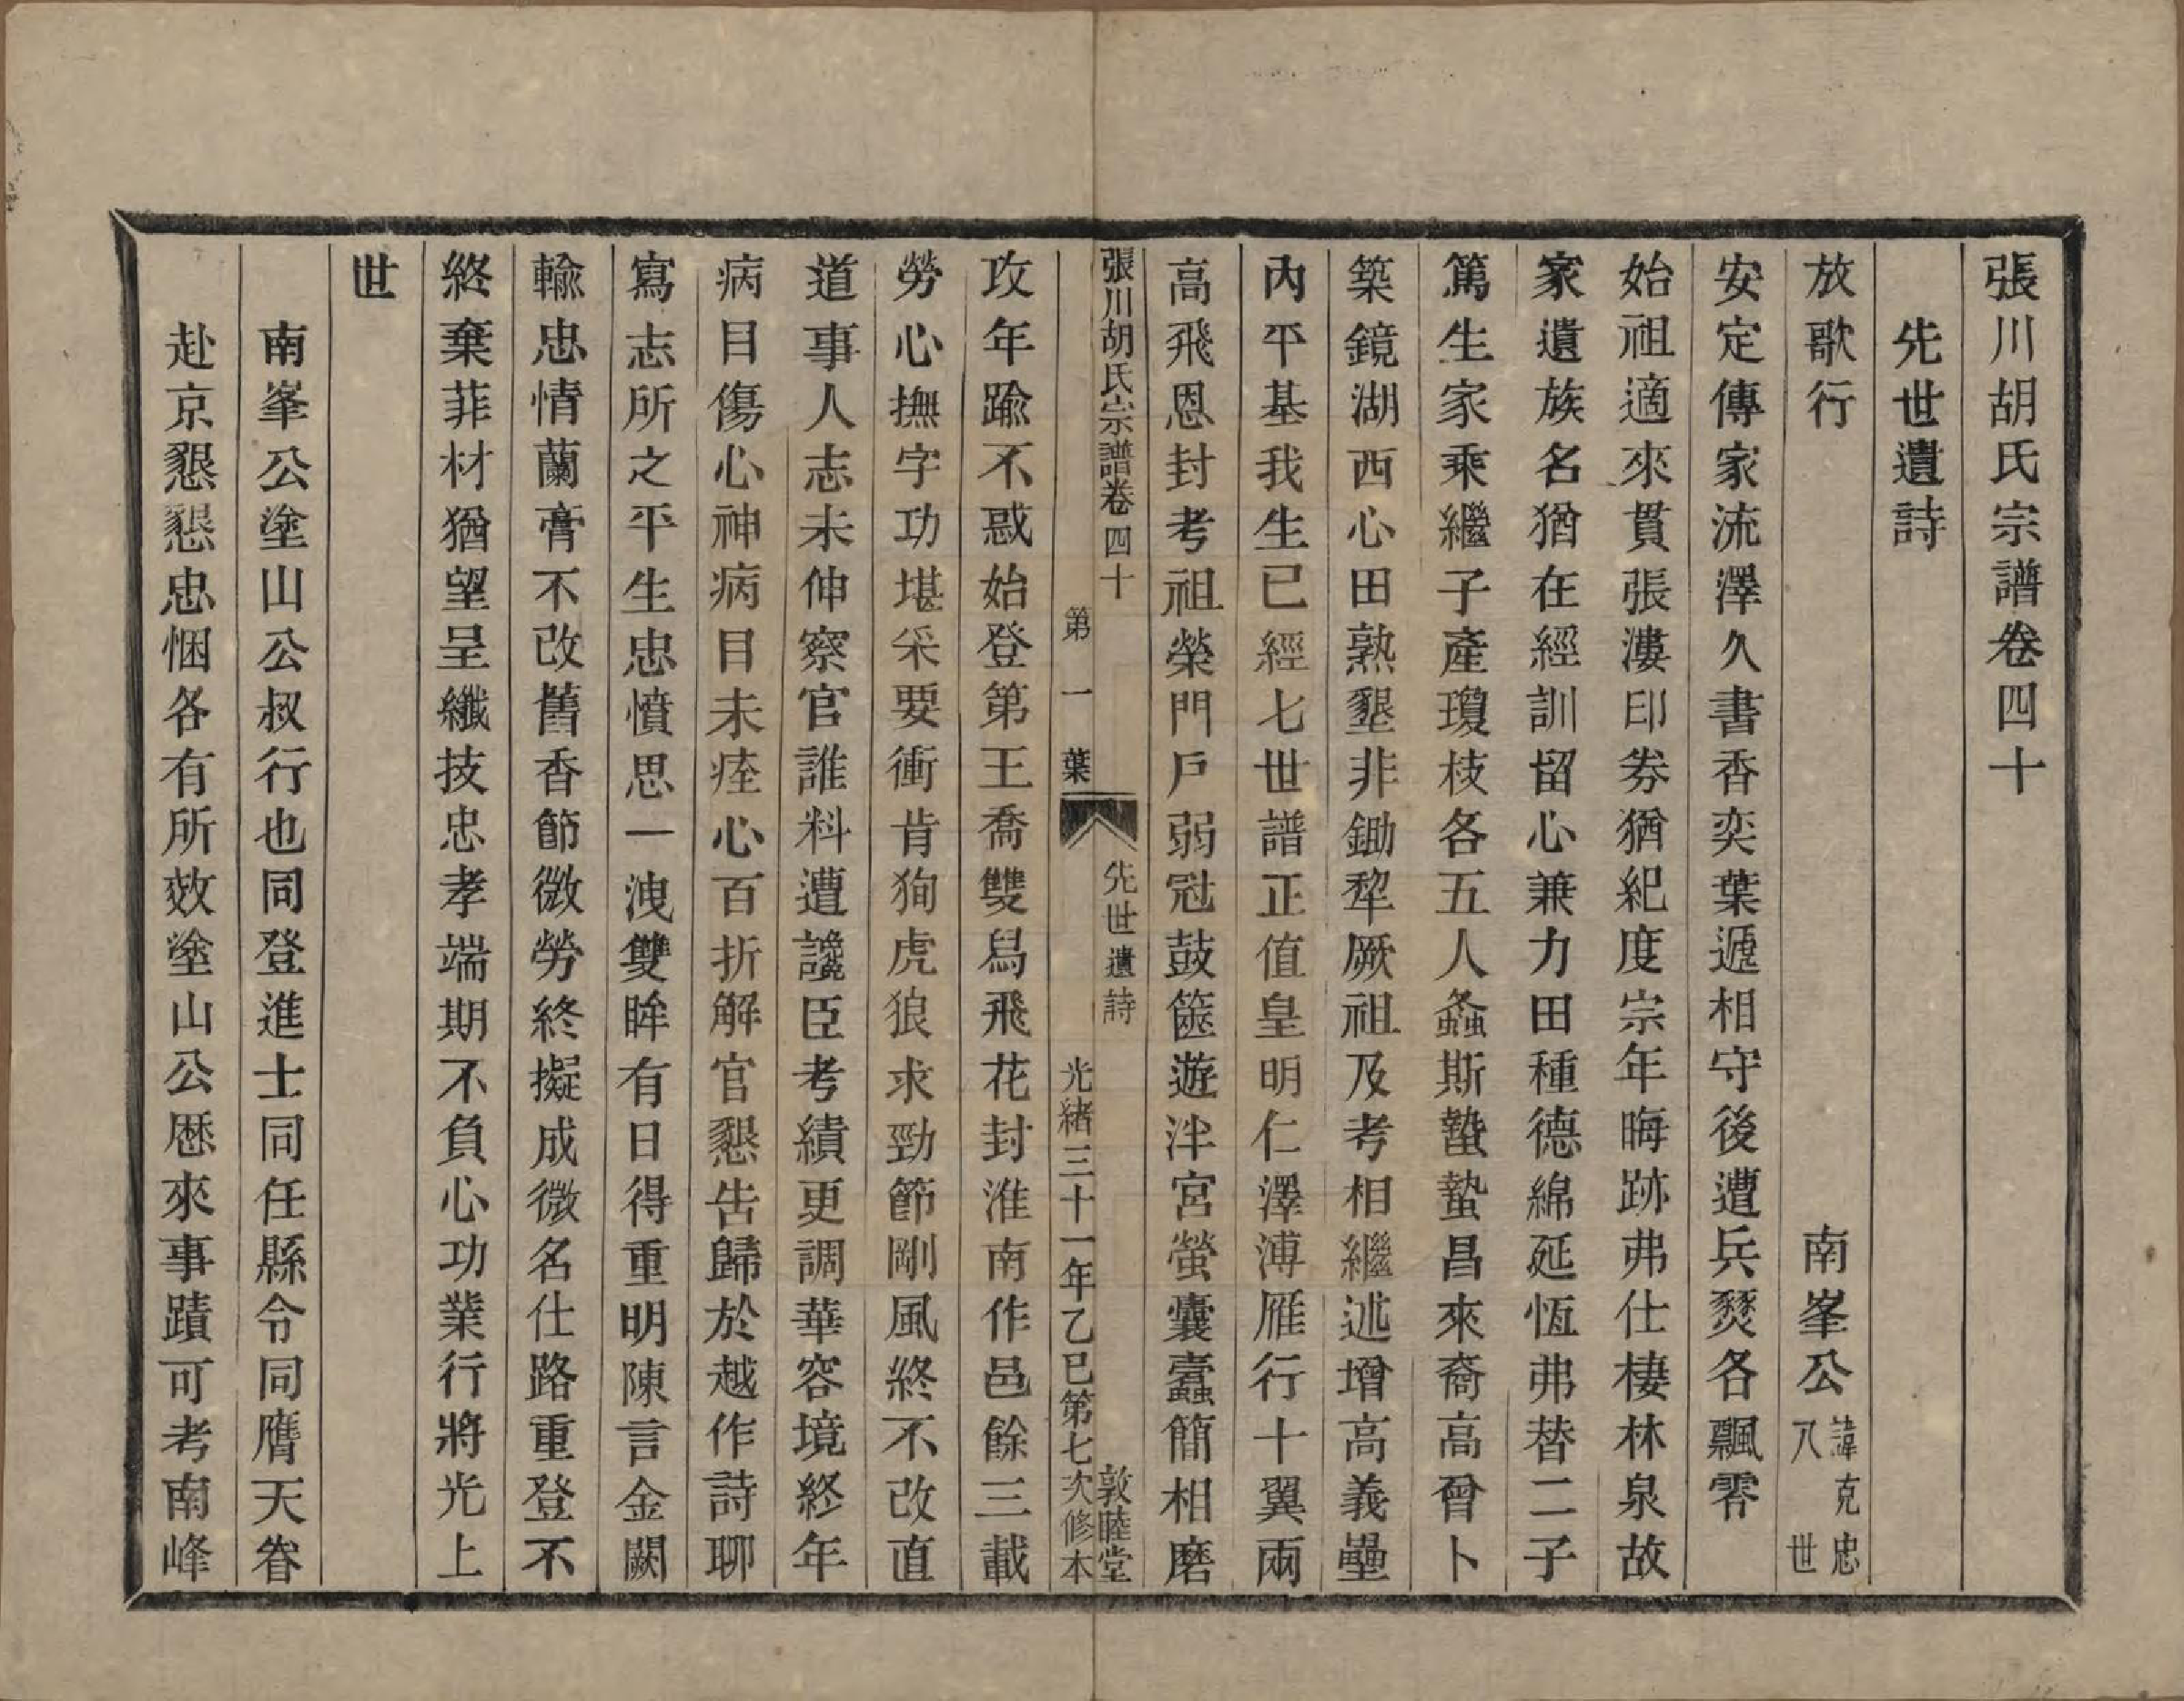 張川胡氏宗譜卷四十
先世遺詩
放歌行 南峯公 諱克忠 八世
安定傳家流澤久書香奕葉遞相守後遭兵燹各飄零
始祖適來貫張漊印劵猶紀度宗年晦跡弗仕棲林泉故
家遺族名猶在經訓畱心兼力田種德綿延恆弗替二子
篤生家乘繼子產瓊枝各五人螽斯蟄蟄昌來裔高曾卜
築鏡湖西心田熟墾非鋤犂厥祖及考相繼述增高義壘
內平基我生已經七世譜正值皇明仁澤溥雁行十翼兩
高飛恩封考祖榮門戶弱冠鼓篋遊泮宮螢囊蠹簡相磨
張川胡氏宗譜卷四十 先世遺詩 敦睦堂
第一葉 光緒三十一年乙巳第七次修本
攻年踰不惑始登第王喬雙舄飛花封淮南作邑餘三載
勞心撫字功堪采要衝肯狥虎狼求勁節剛風終不改直
道事人志未伸察官誰料遭讒臣考績更調華容境終年
病目傷心神病目未痊心百折解官懇告歸於越作詩聊
寫志所之平生忠憤思一洩雙眸有日得重明陳言金闕
輸忠情蘭膏不改舊香節微勞終擬成微名仕路重登不
終棄菲材猶望呈纖技忠孝端期不負心功業行將光上
世
南峯公塗山公叔行也同登進士同任縣令同膺天眷
赴京懇懇忠悃各有所效塗山公歷來事蹟可考南峰